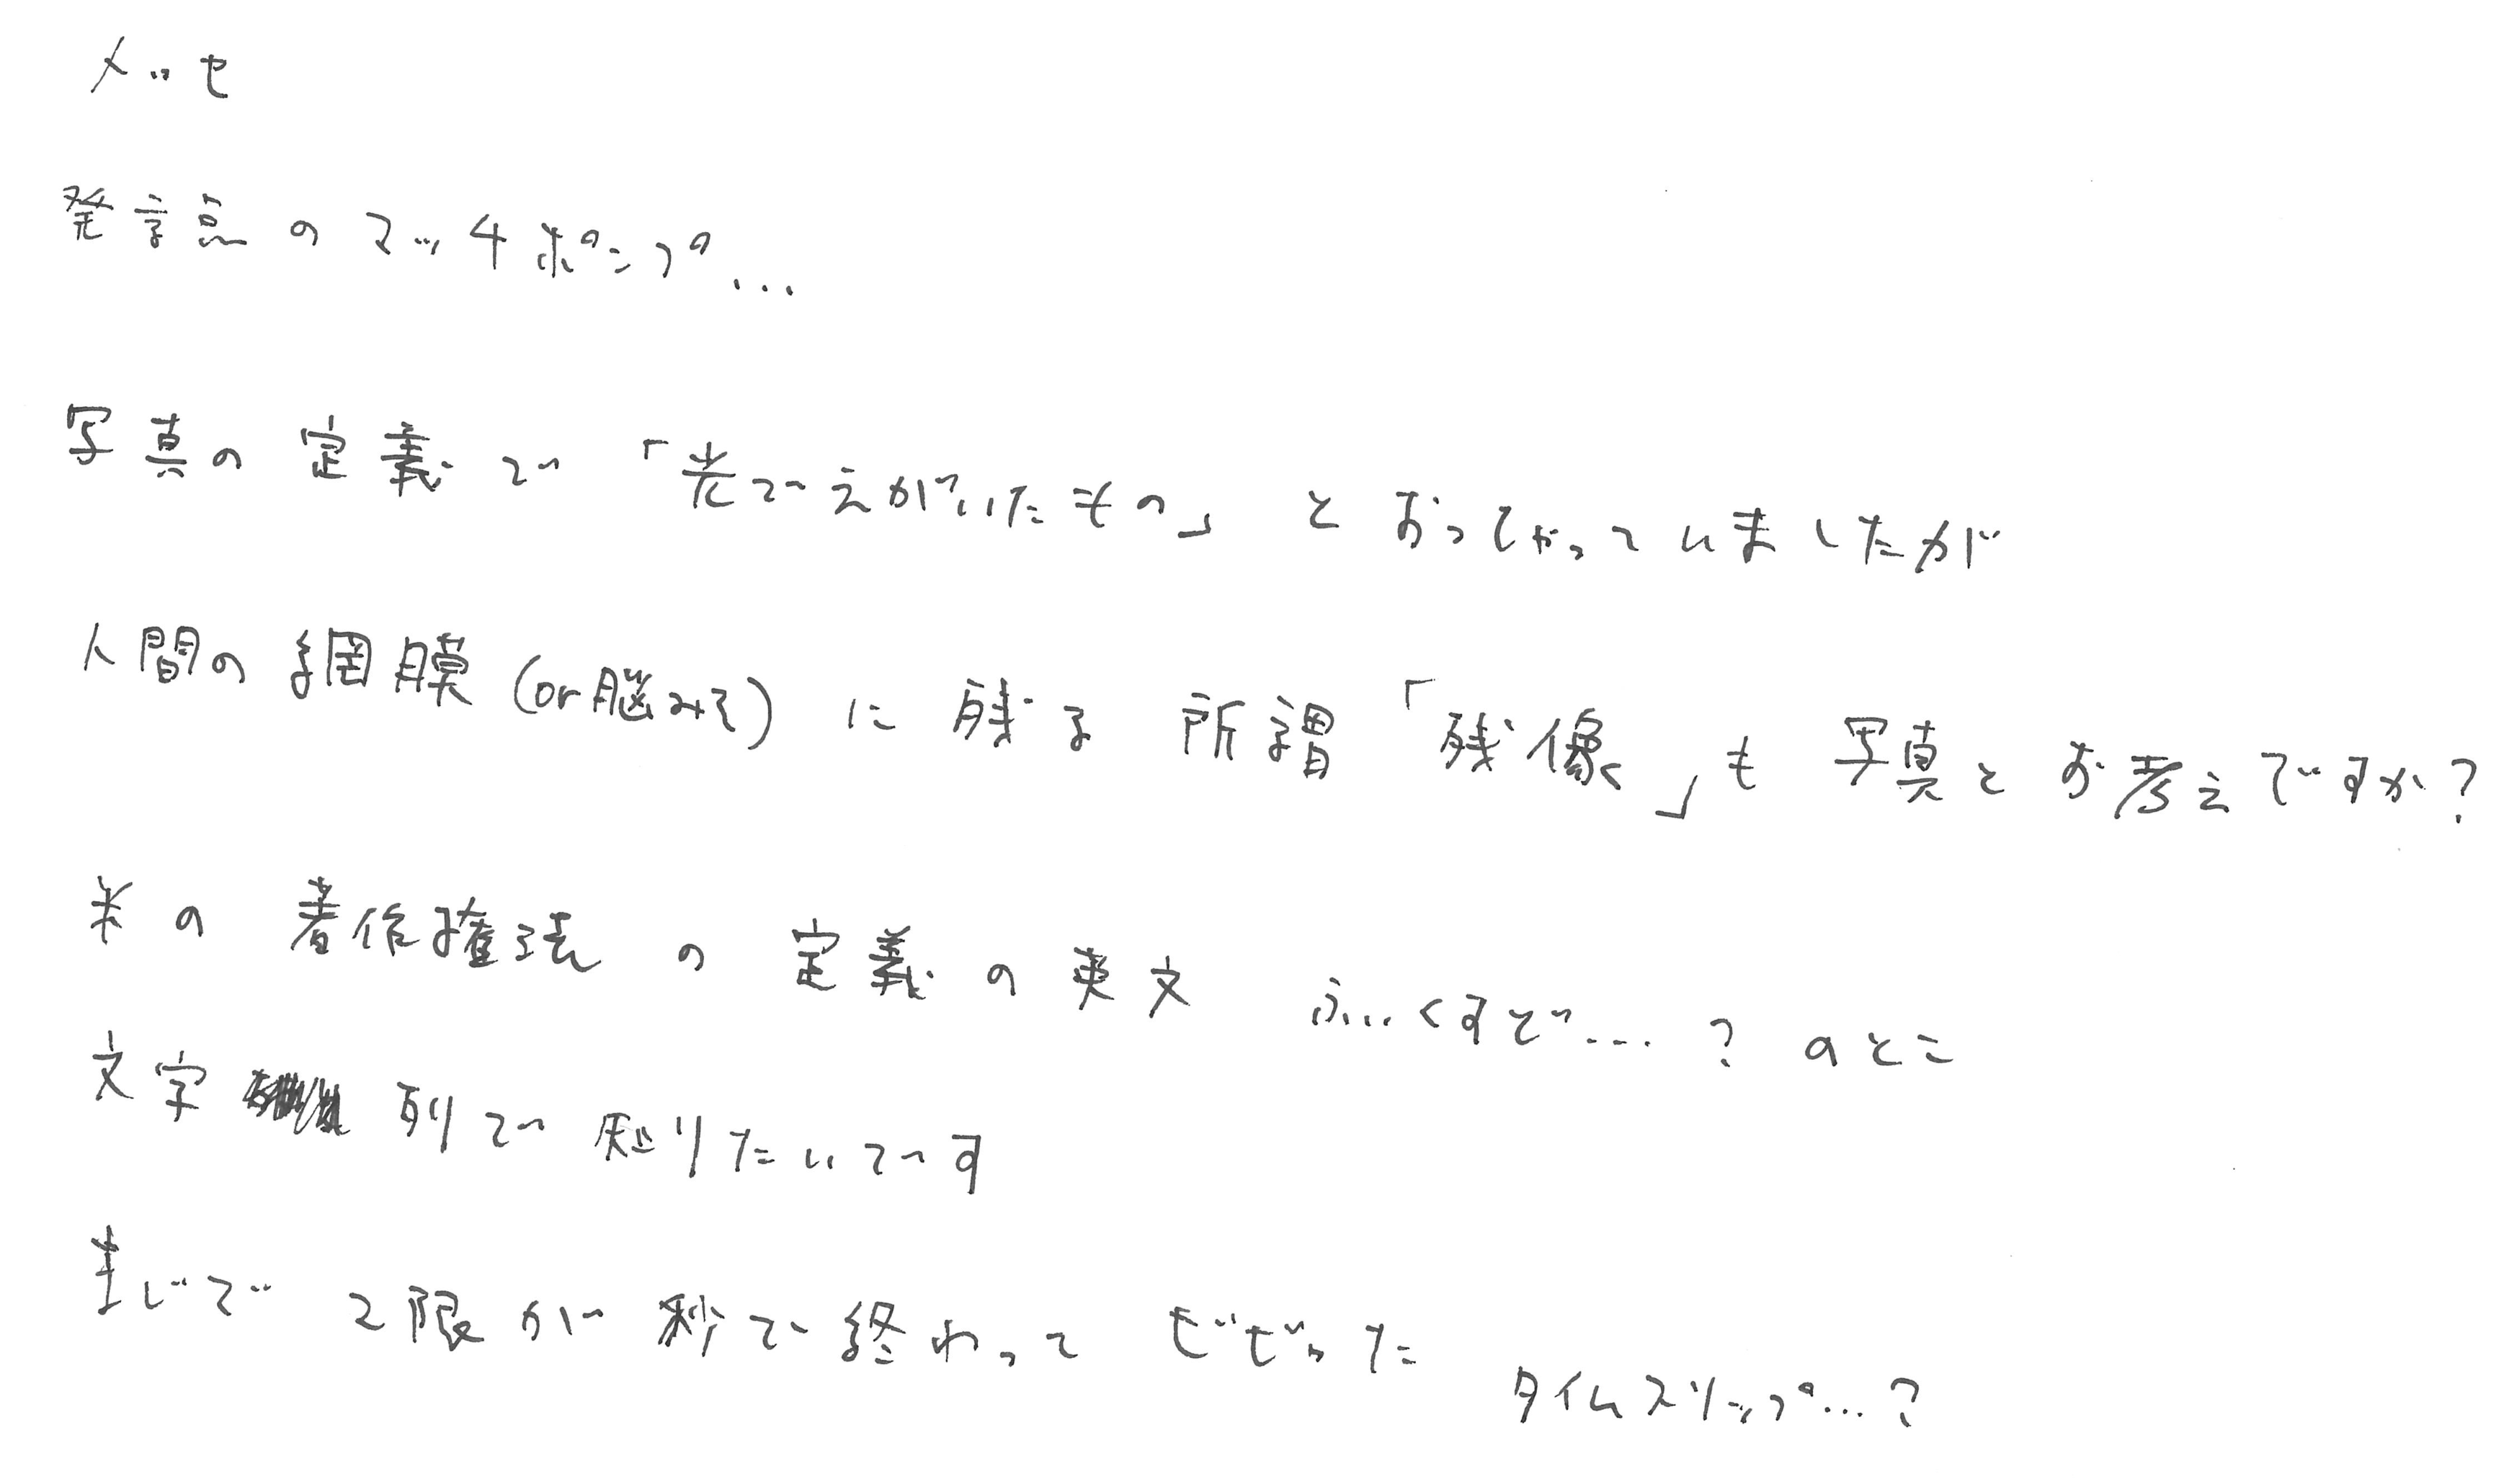 メッセ
発言点のマッチポンプ...
写真の定義で「光でえがいたもの」とおっしゃっていましたが
人間の網膜(or脳みそ)に残る所謂「残像」も写真とお考えですか?
米の著作権法の定義の英文 ふぃ...くすど...?のとこ
文字列で知りたいです
まじで2限が秒で終わってビビった タイムスリップ...?